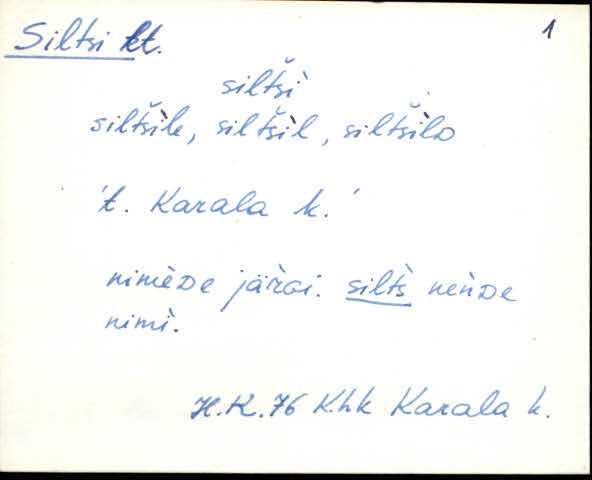 Siltsi kt. 1
siltši̬
siltšile, siltšil, siltšilᴅ
't. Karala k.'
nimeᴅe järɢi. silts nenᴅe
nimi.
H.K. 76 Khk Karala k.